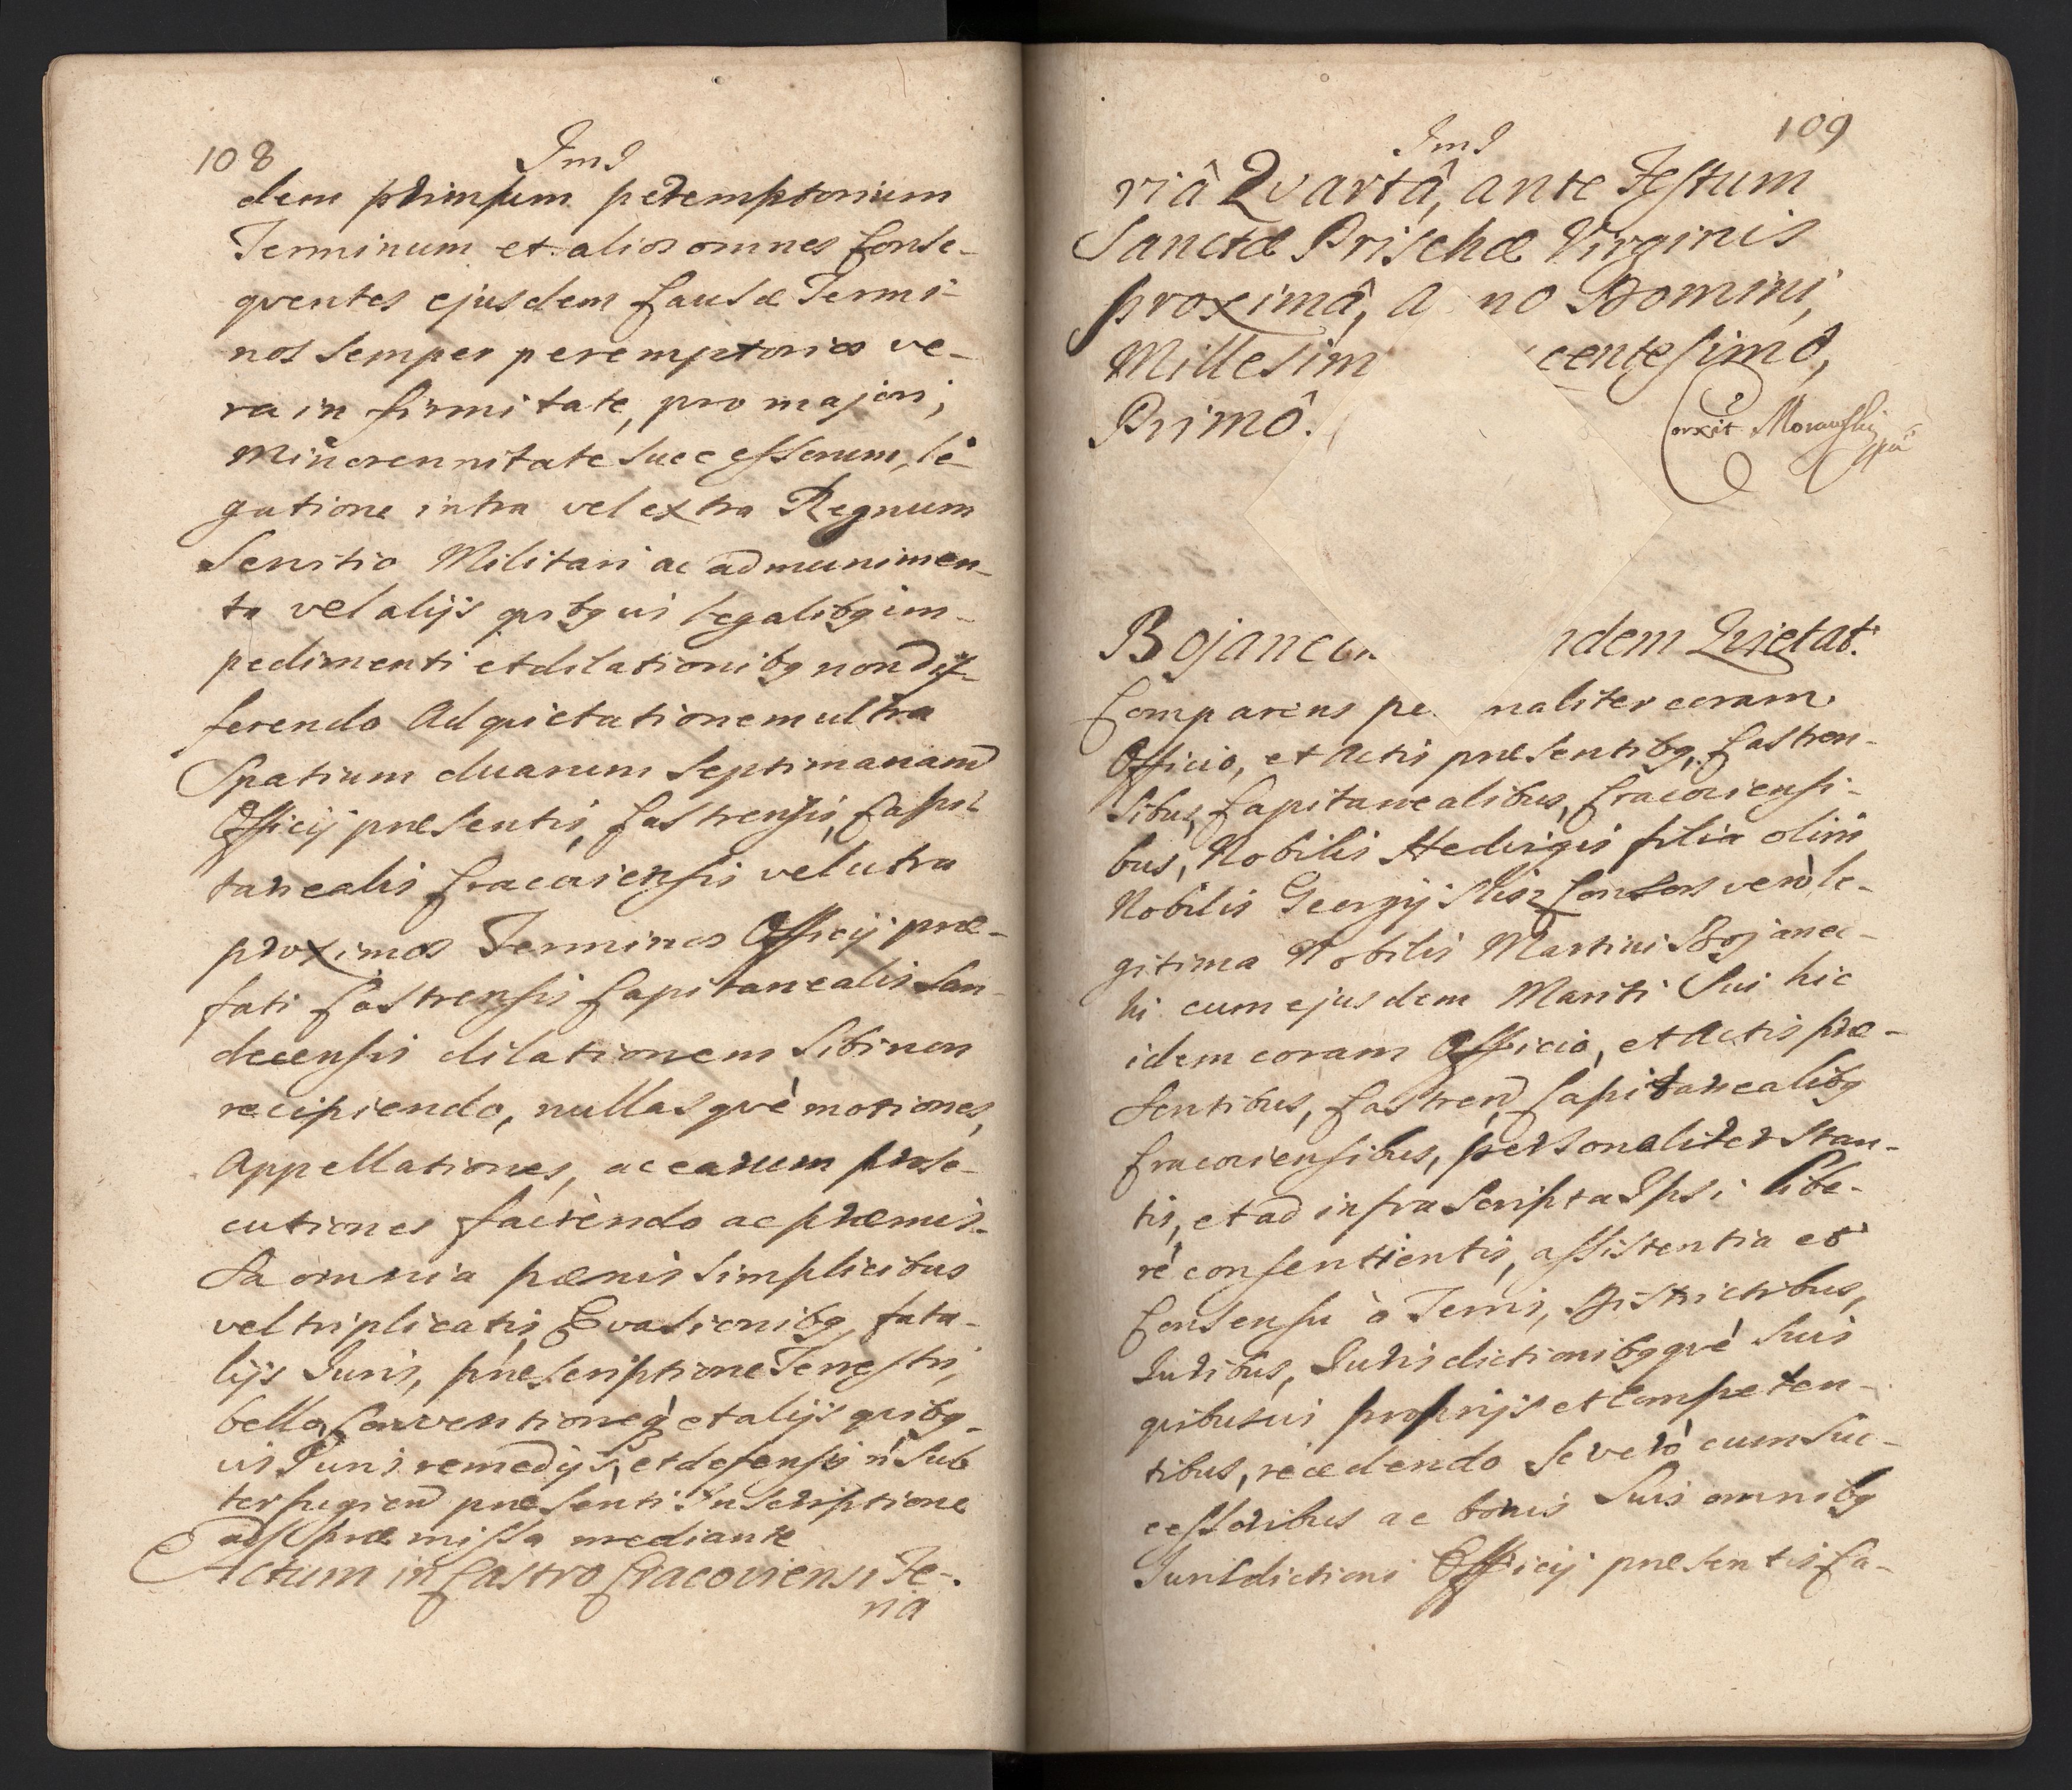 108
Jmd
dem primum peremptorium
Terminum et alios omnes Conse-
qventes ejusdem Causæ Termi-
nos semper peremptorios ve-
ra in firmitate, pro majori,
minorennitate successorum, le-
gatione intra vel extra Regnum
Servitio Militari ac admunimen-
to vel alijs qvibq vis legalibq im-
pedimenti et dilationibq non dif-
ferendo Ad qvietationem ultra
Spatium duarum Septimanarum
Officij præsentis, Castrensis, Capi-
tanealis Cracoviensis vel utra
proximos Terminos Officij præ-
fati Castrensis Capitanealis San-
decensis dilationem sibi non
recipiendo, nullas qvè motiones,
Appellationes, ac earum prose-
cutiones faciendo ac præmis-
sa omnia pænis simplicibus
vel triplicatis, Evasionibq, fata-
lijs Juris, præscriptione Terrestri,
bello, Conventioneq et alijs qvibq-
vis Juris remedijs, et defensis n sub
terfugiend præsenti Inscriptione
ad præmissa mediante
Actum in Castro Cracoviensi Fe-
ria
109
Jmd
riâ Qvartâ, ante Festum
Sanctæ Prischæ Virginis
proximâ, A no Domini,
Millesim centesimô,
Primô.
Corxit Morawski
mpa
Bojanec idem Qvietat.
Comparens pe naliter coram
Officio, et Actis præsentibq, Castren-
sibus, Capitanealibus, Cracoviensi-
bus, Nobilis Hedvigis filia olim
Nobilis Georgij Consors verò le-
gitima Nobilis Martini Bojanec-
ki cum ejusdem Mariti Sui hic
idem coram Officio, et Actis præ-
sentibus, Castren, Capitanealibq
Cracoviensibus, personaliter stan-
tis, et ad infra scripta Ipsi libe-
rè consentientis, assistentia et
Consensu à Terris, Districtibus,
Juribus, Jurisdictionibqqvè suis
qvibusvis proprijs et Competen-
tibus, recedendo se verò cum suc-
cessoribus ac bonis suis omnibq
Jurisdictioni Officij præsentis Ca-